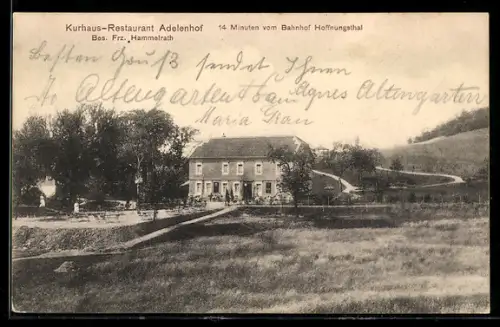 Kurhaus-Restaurant Adelenhof 14 Minuten vom Bahnhof Hoffnungsthal
Bes. Frz. Hammelrath
Besten Gruß sendet Ihnen
Altengarten Agnes Altengarten
Maria